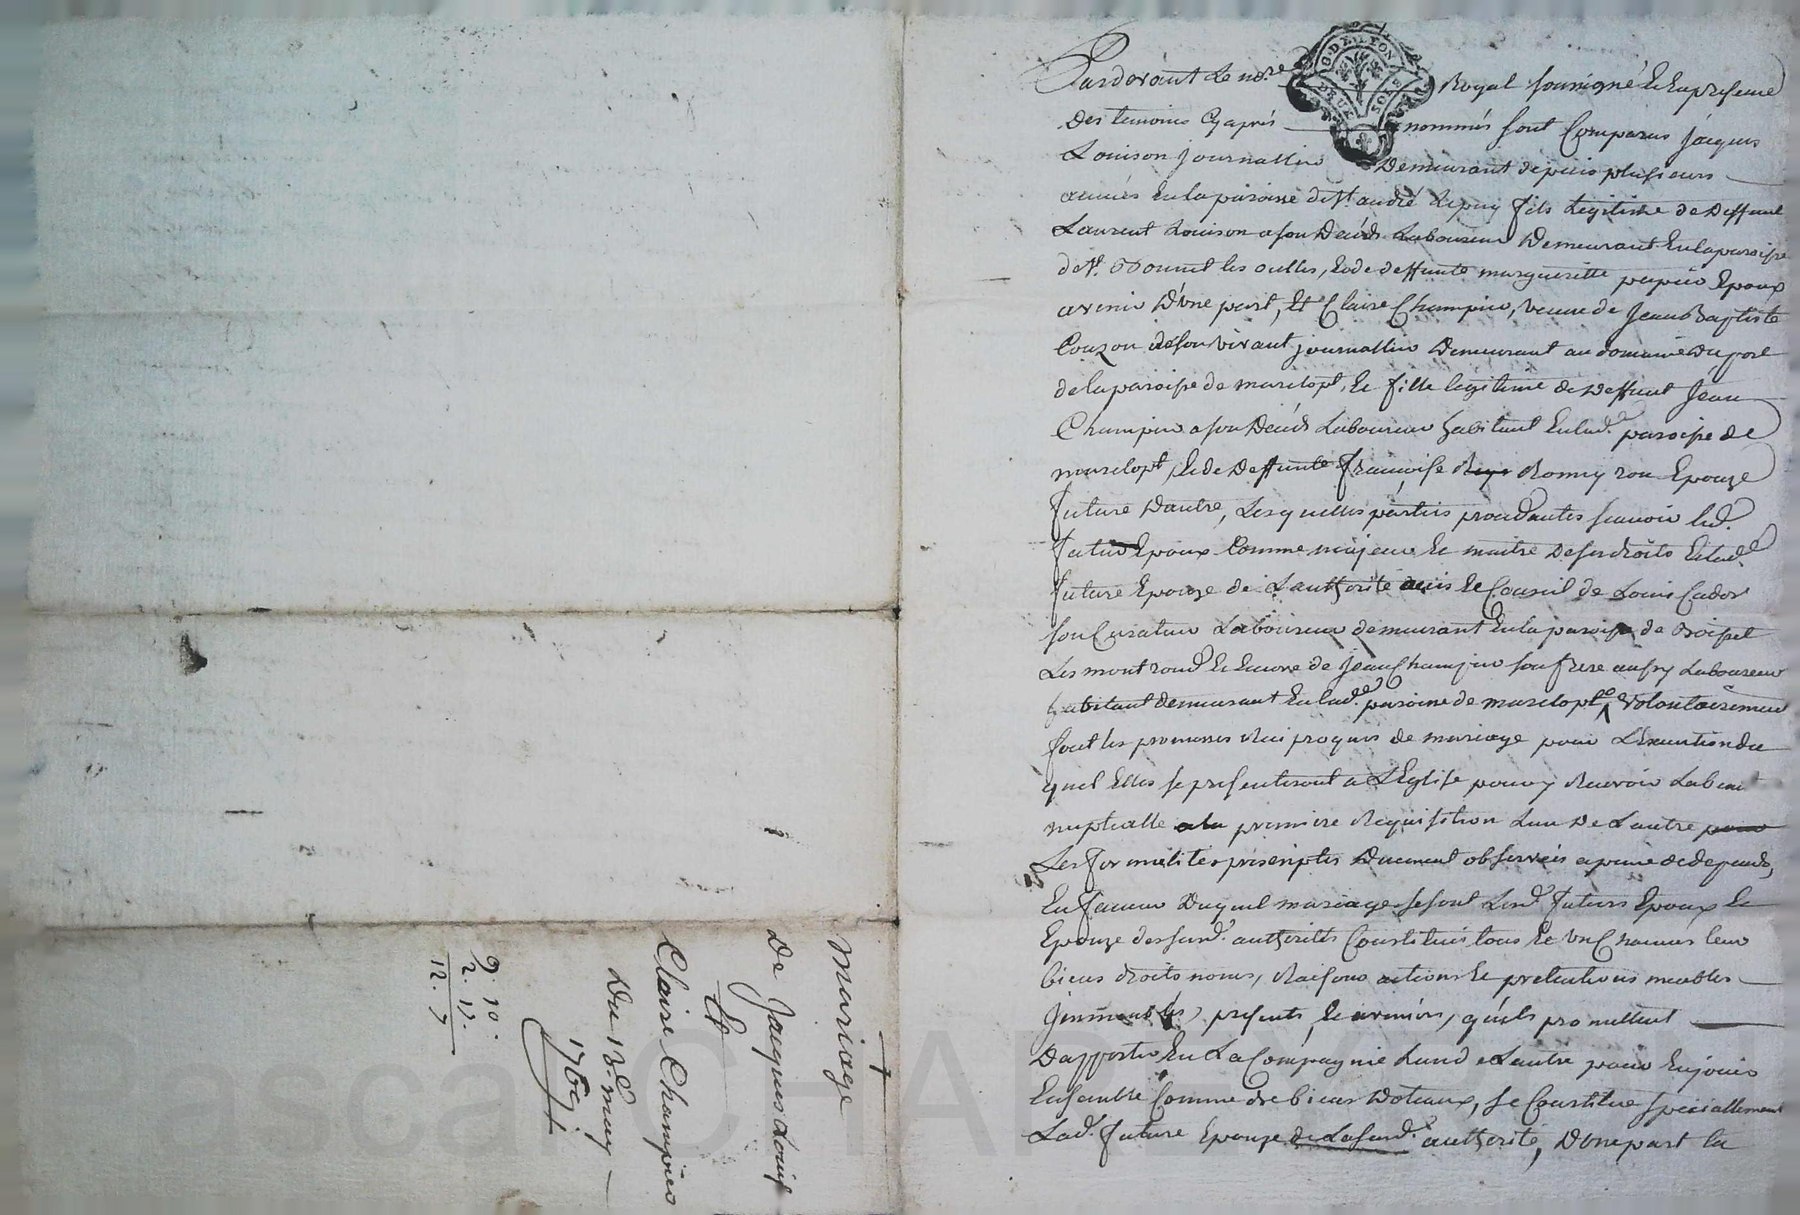 Pardevant Le no.re Royal soussigné Et En presence
Des temoins Cyaprés nommés sont Comparus Jacques
Louison journallier Demeurant depuis plusieurs
années En la paroisse de St. andré Lepuy fils Legitime de Deffunt
Laurent Louison a son Décéds Laboureur Demeurant En la paroisse
de St. Bonnet les oulles, Et de deffunte margueritte papier Epoux
avenir D'une part, Et Claire Champier, veuve de Jean Baptiste
Couzon de son vivant journallier Demeurant au domaine du port
de la paroisse de marclopt, Et fille legitime de Deffunt Jean
Champier a son Décéds Laboureur habitant En lad. paroisse de
marclopt, Et de Deffunte françoise Romeyron Epouze
future Dautre, Lesquelles parties procedantes scavoir led.
futur Epoux Comme majeur Et maitre De ses droits Et lad.e
future Epouze de Lauthorité avis Et Conseil de Louis Cador
son Curateur Laboureur demeurant En la paroisse de Boisset
Les montrond Et Encore de Jean Champier son frere aussy Laboureur
habitant demeurant En lad.e paroisse de marclopt, Volontairement
font les promesses Reciproques de mariage pour L'Execution du
quel Elles se presenteront a L'Eglise pour y Recevoir La ben.on
nuptialle a la premiere Requisition Lun De Lautre
Les formalites prescriptes Duement observées a peine de depends,
En faveur Duquel mariage se sont Lesd. futurs Epoux Et
Epouze des susd. authorités Constitués tous Et un Chacuns leurs
biens droits noms, Raisons actions Et pretentions meubles
Immeubles, presents Et avenirs, qu'ils promettent
Dapporter En La Compagnie Lun de Lautre pour En jouir
Ensemble Comme de biens Dotaux, se Constitue specialement
Lad. future Epouze de La susd. authorité, D'une part la
mariage
De Jacques Louison
Et
Claire Champier
Du 18e. may
1769
9. 10.
2. 17.
12. 7
G. DE LYON
DEUX SOLS
Pascal CHAREYRON